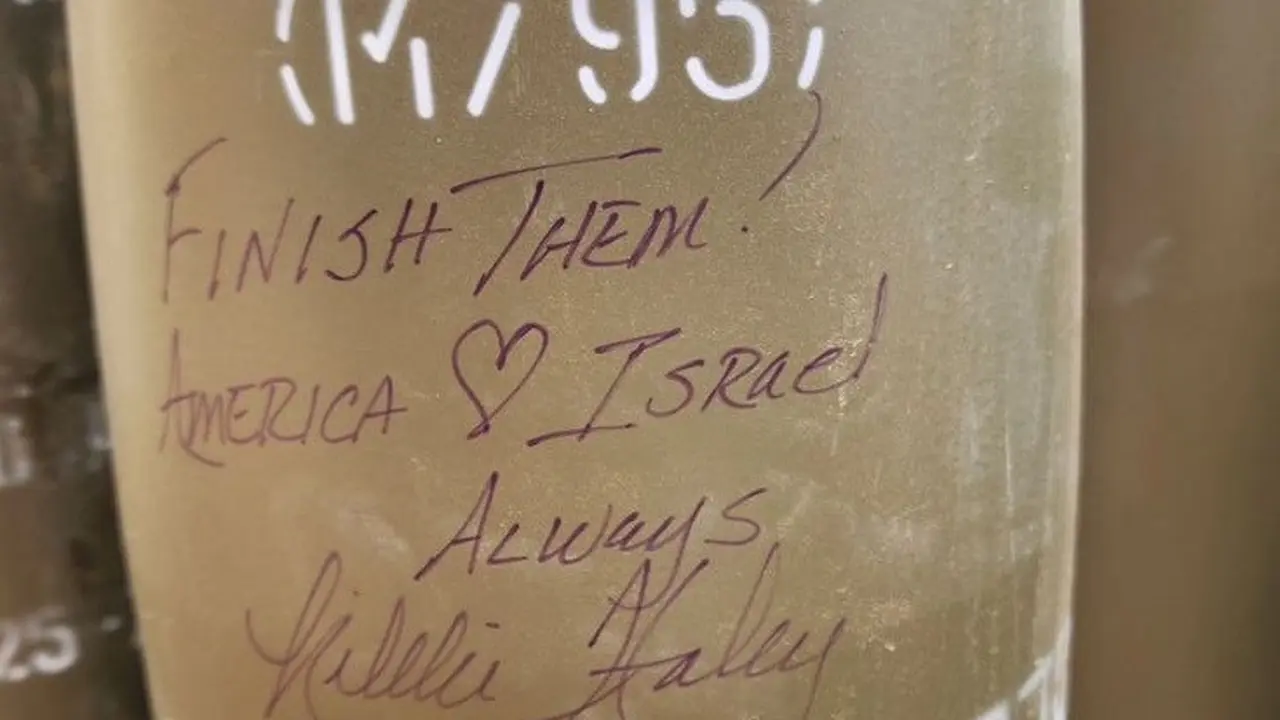 (14/93)
FINISH THEM!
AMERICA ♡ ISRAEL
ALWAYS
Nikki Haley
25